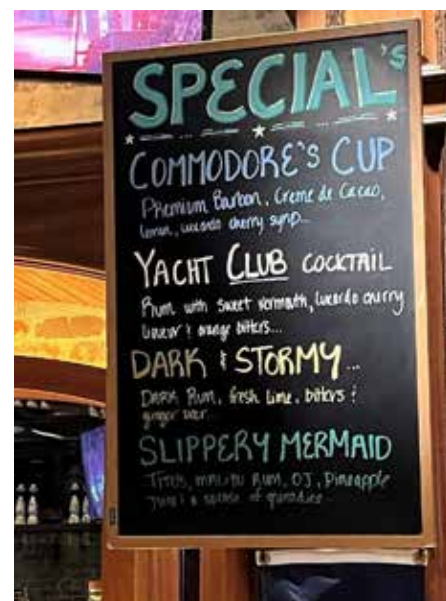 SPECIAL'S
COMMODORE'S CUP
Premium Bourbon, Creme de Cacao,
lemon, luxardo cherry syrup...
YACHT CLUB COCKTAIL
Rum with sweet vermouth, luxardo cherry
liqueur & orange bitters...
DARK & STORMY...
DARK Rum, fresh lime, bitters &
ginger beer...
SLIPPERY MERMAID
Titos, malibu Rum, OJ, Pineapple
Juice & a splash of grenadine...